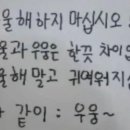 울해 하지 마십시오
울과 우웅은 한끗 차이입
울해 말고 귀여워지십
과 같이 : 우웅~